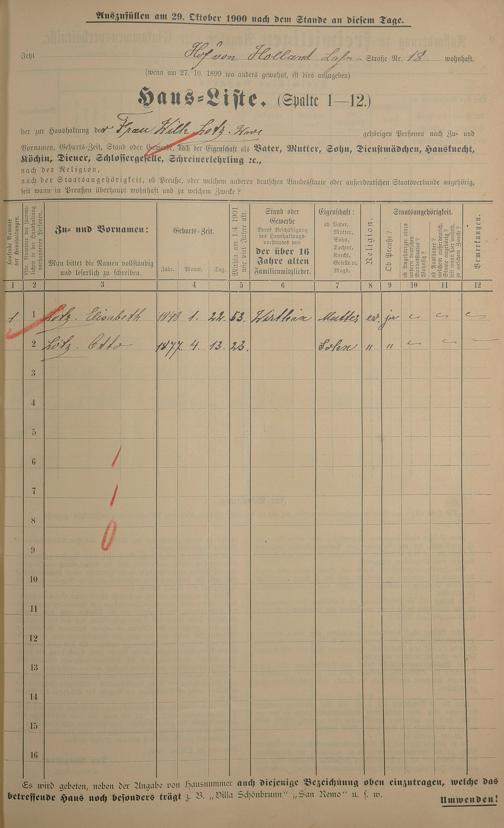 Auszufüllen am 29. Oktober 1900 nach dem Stande an diesem Tage.
Jetzt Hof von Holland -Straße Nr. 18 wohnhaft.
(wenn am 27. 10. 1899 wo anders gewohnt, ist dies anzugeben)
Haus-Liste. (Spalte 1—12.)
der zur Haushaltung der Frau Wilh Lotz, gehörigen Personen nach Zu- und
Vornamen, Geburts-Zeit, Stand oder Gewerbe, nach der Eigenschaft als Vater, Mutter, Sohn, Dienstmädchen, Hausknecht,
Köchin, Diener, Schlossergeselle, Schreinerlehrling ꝛc.,
nach der Religion,
nach der Staatsangehörigkeit, ob Preuße, oder welchem anderen deutschen Bundesstaate oder außerdeutschen Staatsverbande angehörig,
seit wann in Preußen überhaupt wohnhaft und zu welchem Zwecke?
Zu- und Vornamen:
Man bittet die Namen vollständig und leserlich zu schreiben.
Geburts-Zeit.
Jahr. Monat. Tag.
Mithin am 1/4. 1901 wie viel Jahre alt
Stand oder Gewerbe
der über 16 Jahre alten Familienmitglieder.
Eigenschaft:
ob Vater, Mutter, Sohn, Tochter, Knecht, Geselle u. Magd.
Religion.
Staatsangehörigkeit.
Ob Preuße?
Bemerkungen.
1 2 3 4 5 6 7 8 9 10 11 12
1 1 Lotz, Elisabeth 1848 1. 22. 53. Wirthin Mutter ev. ja
2 Lotz, Otto 1877 4. 13. 23. Sohn " "
3
4
5
6 1
7 1
8
9 0
10
11
12
13
14
15
16
Es wird gebeten, neben der Angabe von Hausnummer auch diejenige Bezeichnung oben einzutragen, welche das
betreffende Haus noch besonders trägt z. B. "Villa Schönbrunn" "San Remo" u. s. w.
Umwenden!